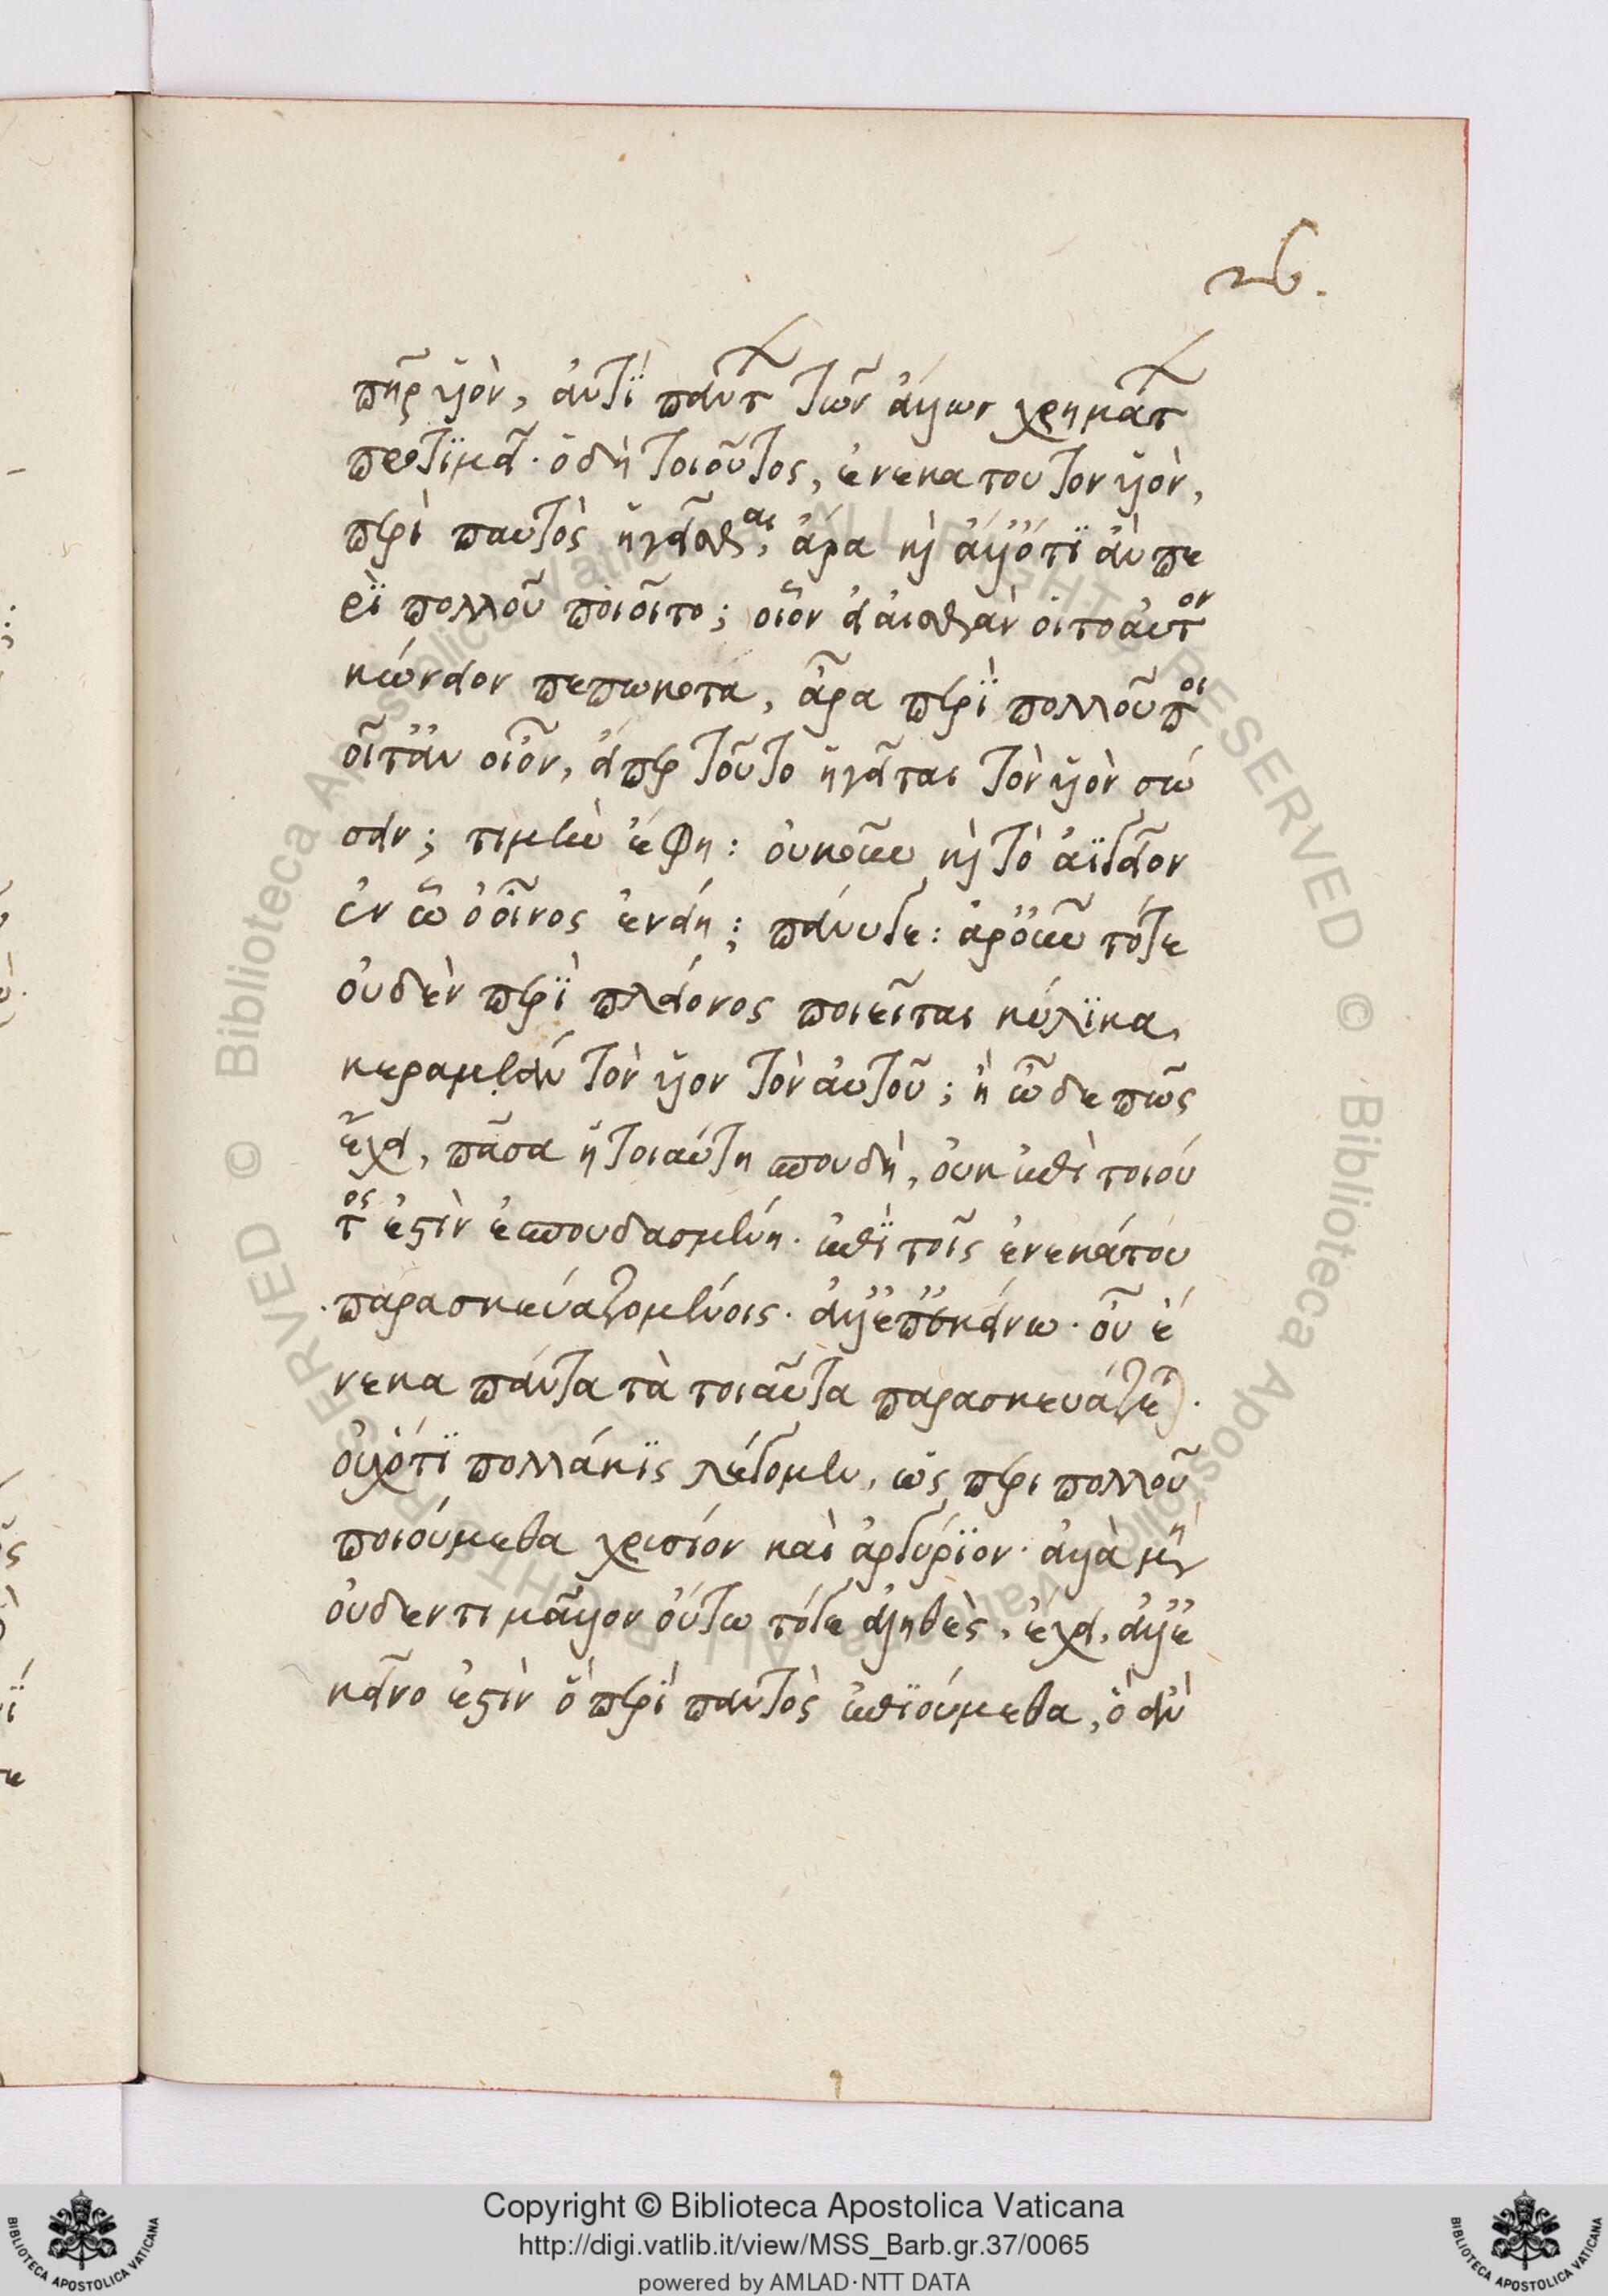 26.
πηρ ὑὸν, ἀντὶ πάντων τῶν ἄλλων χρημάτων
προτιμᾷ. ὁ δὴ τοιοῦτος, ἕνεκα του τον ὑὸν,
περὶ παντὸς ἡγεῖσθαι, ἄρα καὶ ἄλλό τι ἂν πε
ρὶ πολλοῦ ποιοῖτο; οἷον εἰ αισθάν οιτο αὐτον
κώνειον πεπωκοτα, ἆρα περὶ πολλοῦ ποι
οῖτ ἂν οἶον, εἴπερ τοῦτο ἡγεῖται τὸν ὑὸν σώ
σειν; τιμὴν ἔφη: οὐκοῦν καὶ τὸ ἀγγεῖον
ἐν ᾧ ὁ οἶνος ἐνείη; πάνυ γε: ἀρ οὖν τότε
οὐδὲν περὶ πλείονος ποιεῖται κύλικα,
κεραμεὰν τὸν ὑον τὸν αὑτοῦ; ἢ ὧδε πῶς
ἔχει, πᾶσα ἡ τοιαύτη σπουδὴ, οὐκ ἐπὶ τοιού
τος ἐστὶν ἐσπουδασμένη. ἐπὶ τοῖς ἕνεκά του
παρασκευαζομένοις. ἀλλ' ἐπ' ἐκείνω. οὗ ἕ
νεκα πάντα τὰ τοιαῦτα παρασκευάζεται.
οὐχ ὅτι πολλάκις λέγομεν, ὡς περι πολλοῦ
ποιούμεθα χρισίον καὶ ἀργύριον. ἀλλὰ μὴ
οὐδεν τι μᾶλλον οὕτω τόγε ἀληθὲς, ἔχει, ἀλλ' ἐ
κεῖνο ἐστὶν ὃ περὶ παντὸς ἐπιούμεθα, ὃ ἂν
Copyright © Biblioteca Apostolica Vaticana
http://digi.vatlib.it/view/MSS_Barb.gr.37/0065
powered by AMLAD·NTT DATA